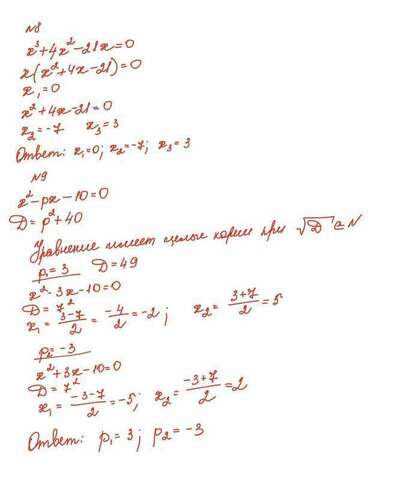 №8
x³+4x²-21x=0
x(x²+4x-21)=0
x₁=0
x²+4x-21=0
x₂=-7 x₃=3
Ответ: x₁=0; x₂=-7; x₃=3
№9
x²-px-10=0
D=p²+40
Уравнение имеет целые корни при √D ∈ N
p₁=3 D=49
x²-3x-10=0
D=7²
x₁=(3-7)/2=-4/2=-2; x₂=(3+7)/2=5
p₂=-3
x²+3x-10=0
D=7²
x₁=(-3-7)/2=-5; x₂=(-3+7)/2=2
Ответ: p₁=3; p₂=-3